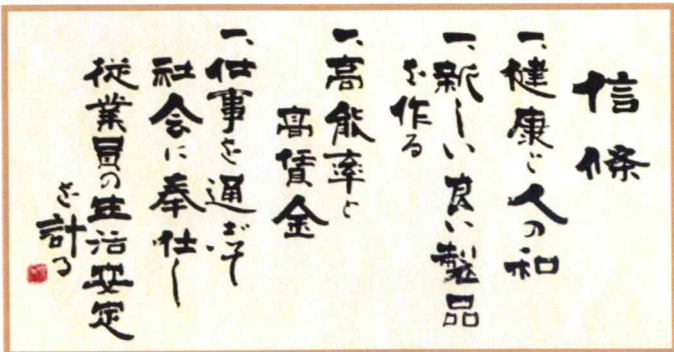 信條
一、健康と人の和
一、新しい良い製品
を作る
一、高能率と
高賃金
一、仕事を通じて
社会に奉仕し
従業員の生活安定
を計る